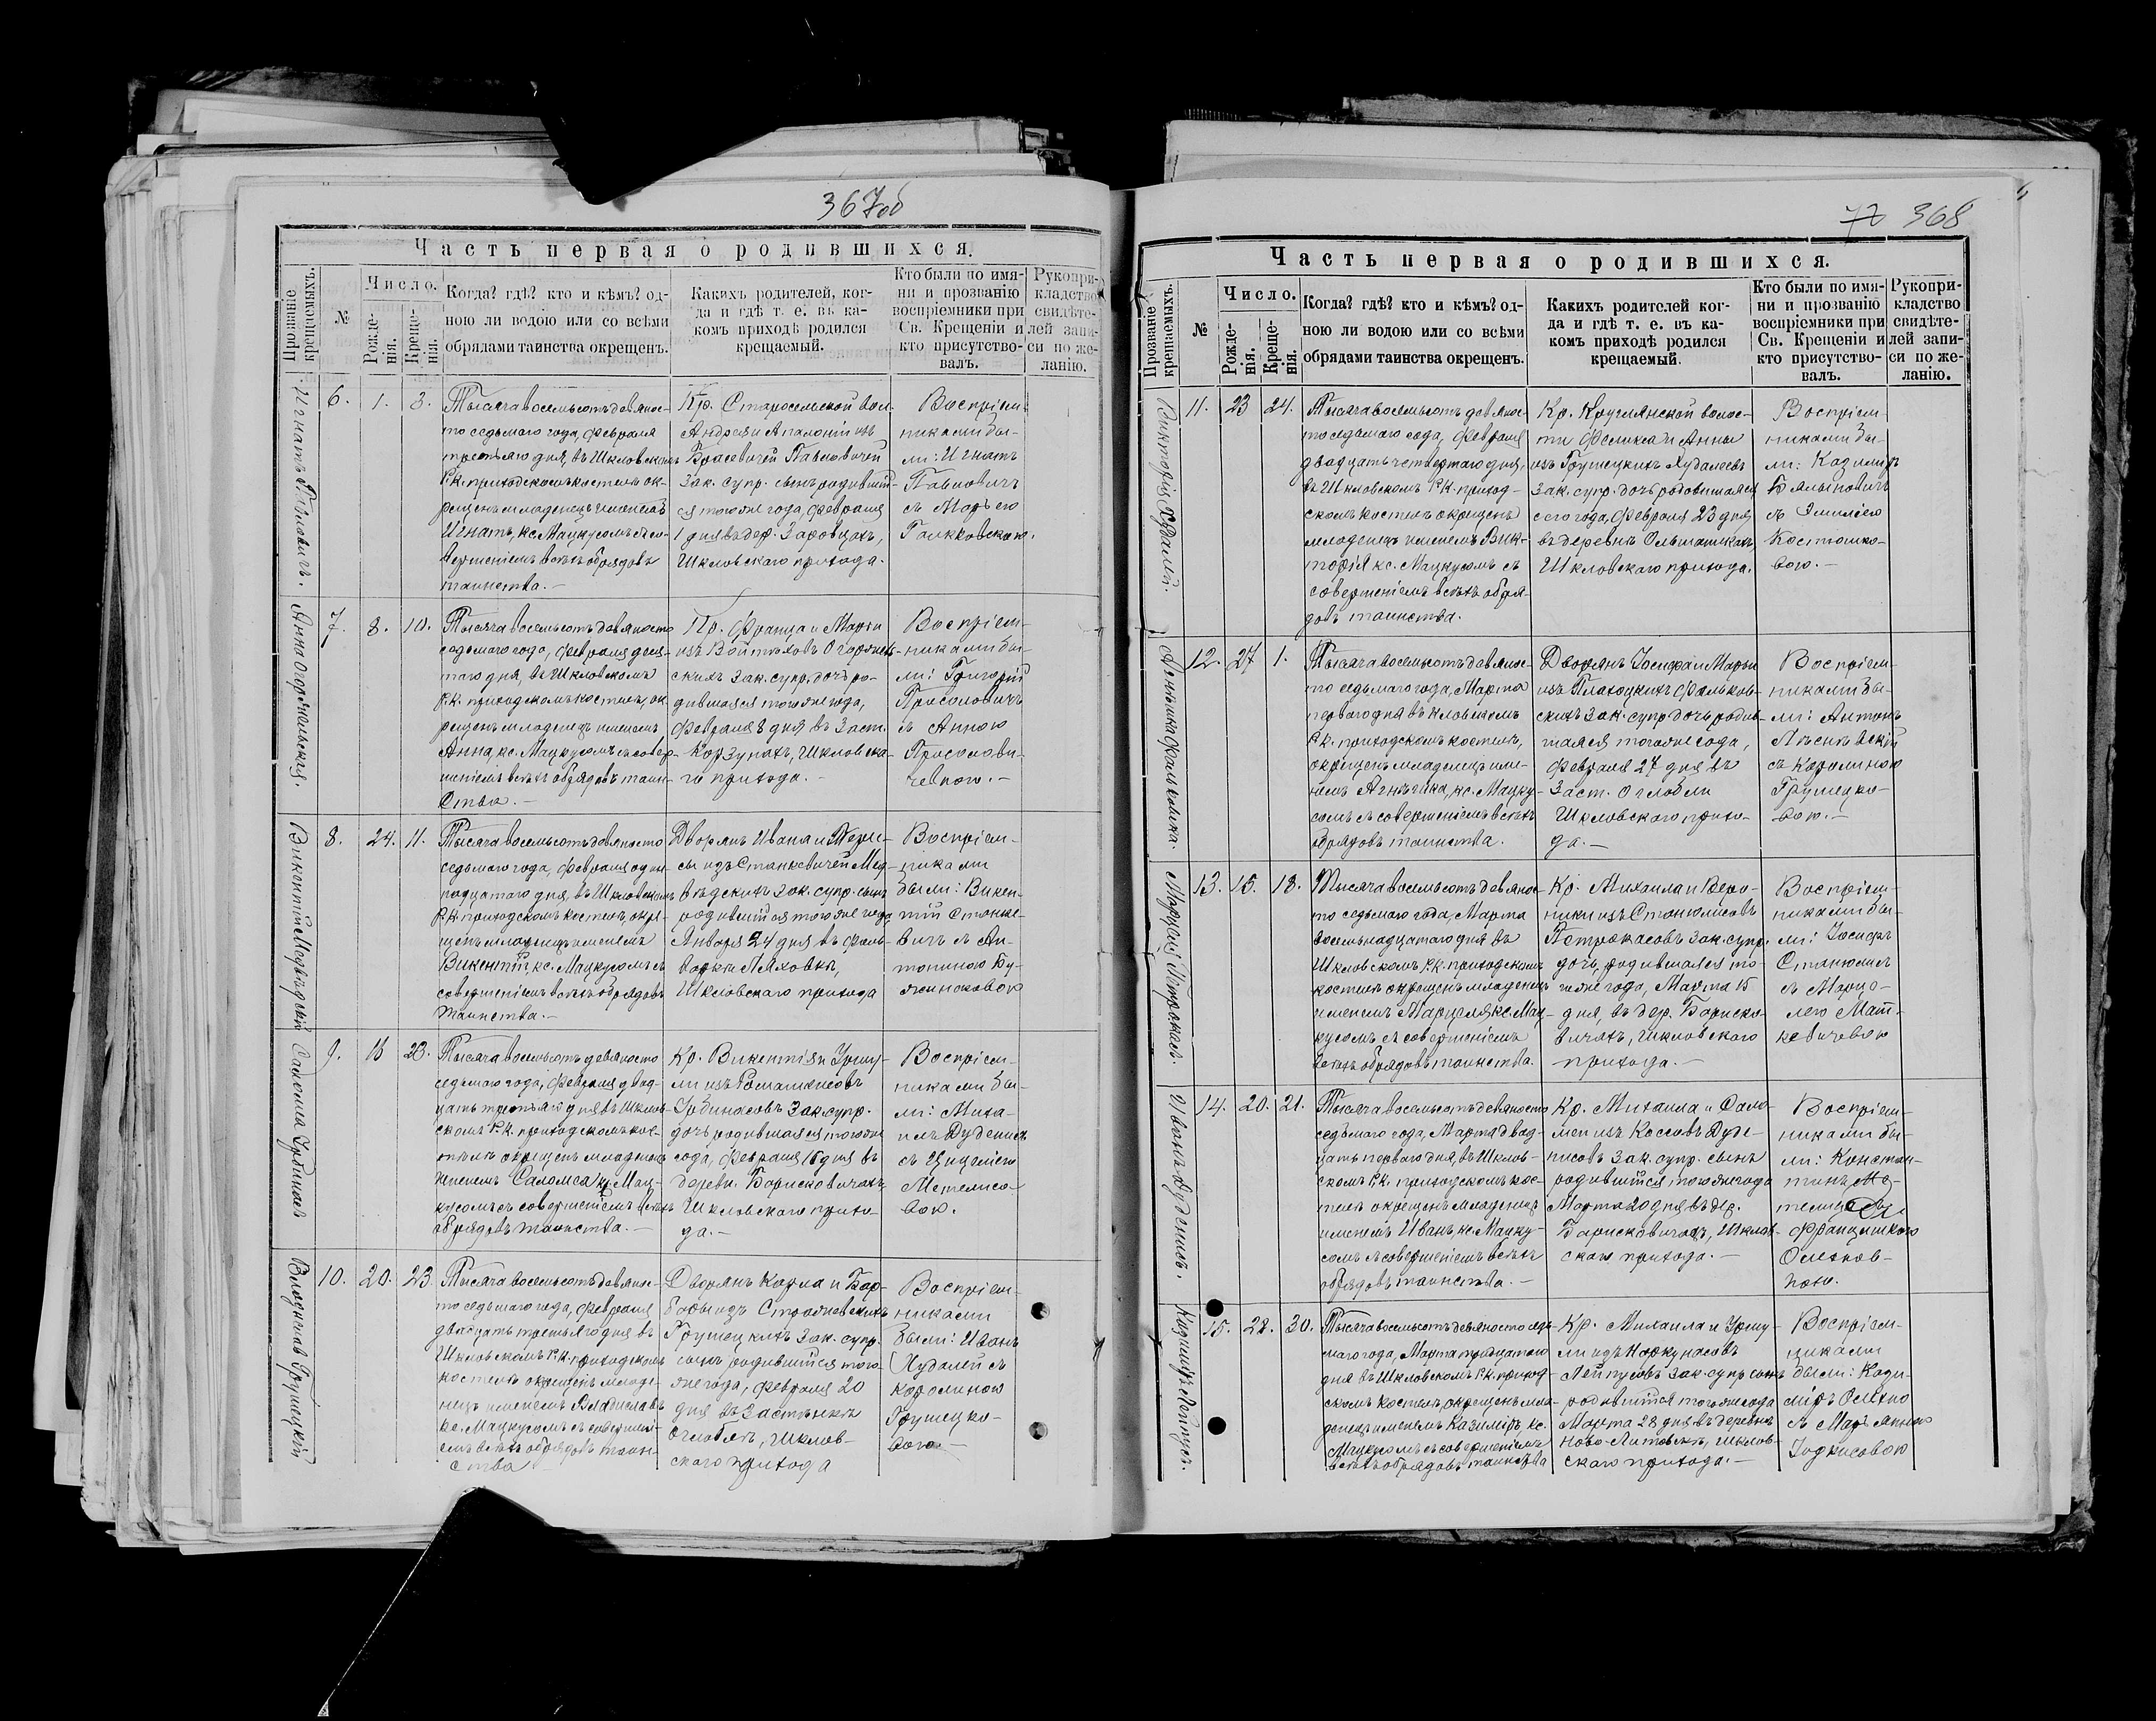 367об
Часть первая о родившихся.
Прозваніе крещаемыхъ.
№
Число.
Рожденія.
Крещенія.
Когда? гдѣ? кто и кѣмъ? од-
ною ли водою или со всѣми
обрядами таинства окрещенъ.
Какихъ родителей, ког-
да и гдѣ т. е. въ ка-
комъ приходѣ родился
крещаемый.
Кто были по имя-
ни и прозванію
воспріемники при
Св. Крещеніи и
кто присутство-
валъ.
Рукопри-
кладство
свидѣте-
лей запи-
си по же-
ланію.
Игнатъ
6.
1.
3.
Тысяча восемьсотъ девянос-
то седьмого года, февраля
третьяго дня, въ Шкловскомъ
Р.К. приходскомъ костелѣ ок-
рещенъ младенецъ именемъ
Игнатъ, кс. Мацкусомъ съ со-
вершеніемъ всѣхъ обрядовъ
таинства. —
Кр. Старосельской вол.
Андрея и Апалоніи изъ
Павловичей
зак. супр. сынъ родивший-
ся того же года, февраля
1 дня въ дер. Заровцахъ,
Шкловскаго прихода.
Воспріем-
никами бы-
ли: Игнатъ
Павловичъ
съ Марьею
Анна Огородельская.
7.
8.
10.
Тысяча восемьсотъ девяносто
седьмого года, февраля деся-
таго дня, въ Шкловскомъ
Р.К. приходскомъ костелѣ, ок-
рещенъ младенецъ именемъ
Анна, кс. Мацкусомъ съ совер-
шеніемъ всѣхъ обрядовъ таин-
ства. —
Франца и Марьи
изъ Войтѣховъ
скихъ зак. супр. дочь ро-
дившаяся того же года,
февраля 8 дня въ заст.
Корзунахъ, Шкловска-
го прихода. —
Воспріем-
никами бы-
ли: Григорій
Просоловичъ
съ Анною
Просолови-
чевною. —
Викентій Медвѣдскій
8.
24.
11.
Тысяча восемьсотъ девяносто
седьмого года, февраля один-
надцатаго дня, въ Шкловскомъ
Р.К. приходскомъ костелѣ, окре-
щенъ младенецъ именемъ
Викентій, кс. Мацкусомъ съ
совершеніемъ всѣхъ обрядовъ
таинства. —
Дворянъ Ивана и Тере-
сы изъ Станкевичей Мед-
вѣдскихъ зак. супр. сынъ
родившійся того же года,
Января 24 дня въ фоль-
варкѣ Ляховкѣ,
Шкловскаго прихода
Воспріем-
никами
были: Викен-
тій Станке-
вичъ съ Ан-
тониною
Саломея Урбинасъ
9.
16
23.
Тысяча восемьсотъ девяносто
седьмого года, февраля двад-
цать третьяго дня въ Шклов-
скомъ Р.К. приходскомъ кос-
телѣ окрещенъ младенецъ
именемъ Саломея кс. Мац-
кусомъ съ совершеніемъ всѣхъ
обрядовъ таинства. —
Кр. Викентія и Уршу-
ли изъ Ромашкисовъ
Урбинасовъ зак. супр.
дочь родившаяся того же
года, февраля 16 дня въ
деревн. Борисковичахъ
Шкловскаго прихо-
да. —
Воспріем-
никами бы-
ли: Миха-
илъ Дуденисъ
съ Цициліею
Метелисо-
вою.
Владиславъ Грушецкій
10.
20.
23
Тысяча восемьсотъ девянос-
то седьмого года, февраля
двадцать третьяго дня въ
Шкловскомъ Р.К. приходскомъ
костелѣ окрещенъ младе-
нецъ именемъ Владиславъ
кс. Мацкусомъ съ совершені-
емъ всѣхъ обрядовъ таин-
ства —
Дворянъ Карла и Бар-
бары изъ
Грушецкихъ зак. супр.
сынъ родившійся того
же года, февраля 20
дня въ застѣнкѣ
Оглобляхъ, Шклов-
скаго прихода
Воспріем-
никами
были: Иванъ
Худалей съ
Каролиною
Грушецко-
вою —
368
Часть первая о родившихся.
Прозваніе крещаемыхъ.
№
Число.
Рожденія.
Крещенія.
Когда? гдѣ? кто и кѣмъ? од-
ною ли водою или со всѣми
обрядами таинства окрещенъ.
Какихъ родителей ког-
да и гдѣ т. е. въ ка-
комъ приходѣ родился
крещаемый.
Кто были по имя-
ни и прозванію
воспріемники при
Св. Крещеніи и
кто присутство-
валъ.
Рукопри-
кладство
свидѣте-
лей запи-
си по же-
ланію.
Викторія Худалей.
11.
23
24.
Тысяча восемьсотъ девянос-
то седьмого года, февраля
двадцать четвертаго дня,
въ Шкловскомъ Р.К. приход-
скомъ костелѣ окрещенъ
младенецъ именемъ Вик-
торія кс. Мацкусомъ съ
совершеніемъ всѣхъ обря-
довъ таинства.
Кр. Круглянской волос-
ти Феликса и Анны
изъ Грушецкихъ Худалеевъ
зак. супр. дочь родившаяся
сего года, февраля 23 дня
въ деревнѣ
Шкловскаго прихода.
Воспріем-
никами бы-
ли: Казимиръ
съ Эмиліею
Костюшко-
вою. —
12.
27
1.
Тысяча восемьсотъ девянос-
то седьмого года, Марта
перваго дня въ
Р.К. приходскомъ костелѣ,
окрещенъ младенецъ име-
немъ кс. Мацку-
сомъ съ совершеніемъ всѣхъ
обрядовъ таинства.
Дворянъ Іосифа и Марьи
изъ Фальков-
скихъ зак. супр. дочь родив-
шаяся того же года,
февраля 27 дня въ
заст. Оглобли
Шкловскаго прихо-
да. —
Воспріем-
никами бы-
ли: Антонъ
съ Каролиною
Грушецко-
вою. —
13.
15.
18.
Тысяча восемьсотъ девянос-
то седьмого года, Марта
восемнадцатаго дня въ
Шкловскомъ Р.К. приходскомъ
костелѣ окрещенъ младенецъ
именемъ Марцеля кс. Мац-
кусомъ съ совершеніемъ
всѣхъ обрядовъ таинства.
Кр. Михаила и Веро-
ники изъ Станюлисовъ
Петрокасовъ зак. супр.
дочь, родившаяся то-
го же года, Марта 15
дня, въ дер. Бориско-
вичахъ, Шкловскаго
прихода. —
Воспріем-
никами бы-
ли: Іосифъ
Станюлисъ
съ Марце-
лею Мат-
кевичевою
Иванъ Дуденисъ.
14.
20.
21.
Тысяча восемьсотъ девяносто
седьмого года, Марта двад-
цать перваго дня, въ Шклов-
скомъ Р.К. приходскомъ кос-
телѣ окрещенъ младенецъ
именемъ Иванъ, кс. Мацку-
сомъ съ совершеніемъ всѣхъ
обрядовъ таинства. —
Кр. Михаила и Сало-
меи изъ Коссовъ Дуде-
нисовъ зак. супр. сынъ
родившійся того же года
Марта 20 дня въ дер.
Борисковичахъ, Шклов-
скаго прихода. —
Воспріем-
никами бы-
ли: Констан-
тинъ Ме-
телис съ
Францишкою
Казимиръ Лейпусъ.
15.
28.
30.
Тысяча восемьсотъ девяносто седь-
маго года, Марта тридцатаго
дня въ Шкловскомъ Р.К. приход-
скомъ костелѣ, окрещенъ мла-
денецъ именемъ Казимиръ, кс.
Мацкусомъ съ совершеніемъ
всѣхъ обрядовъ таинства
Кр. Михаила и Уршу-
ли изъ Норкунасовъ
Лейпусовъ зак. супр. сынъ
родившійся того же года
Марта 28 дня въ деревнѣ
Ново-Литовскѣ, Шклов-
скаго прихода. —
Воспріем-
никами
были: Кази-
міръ
съ Марьянною